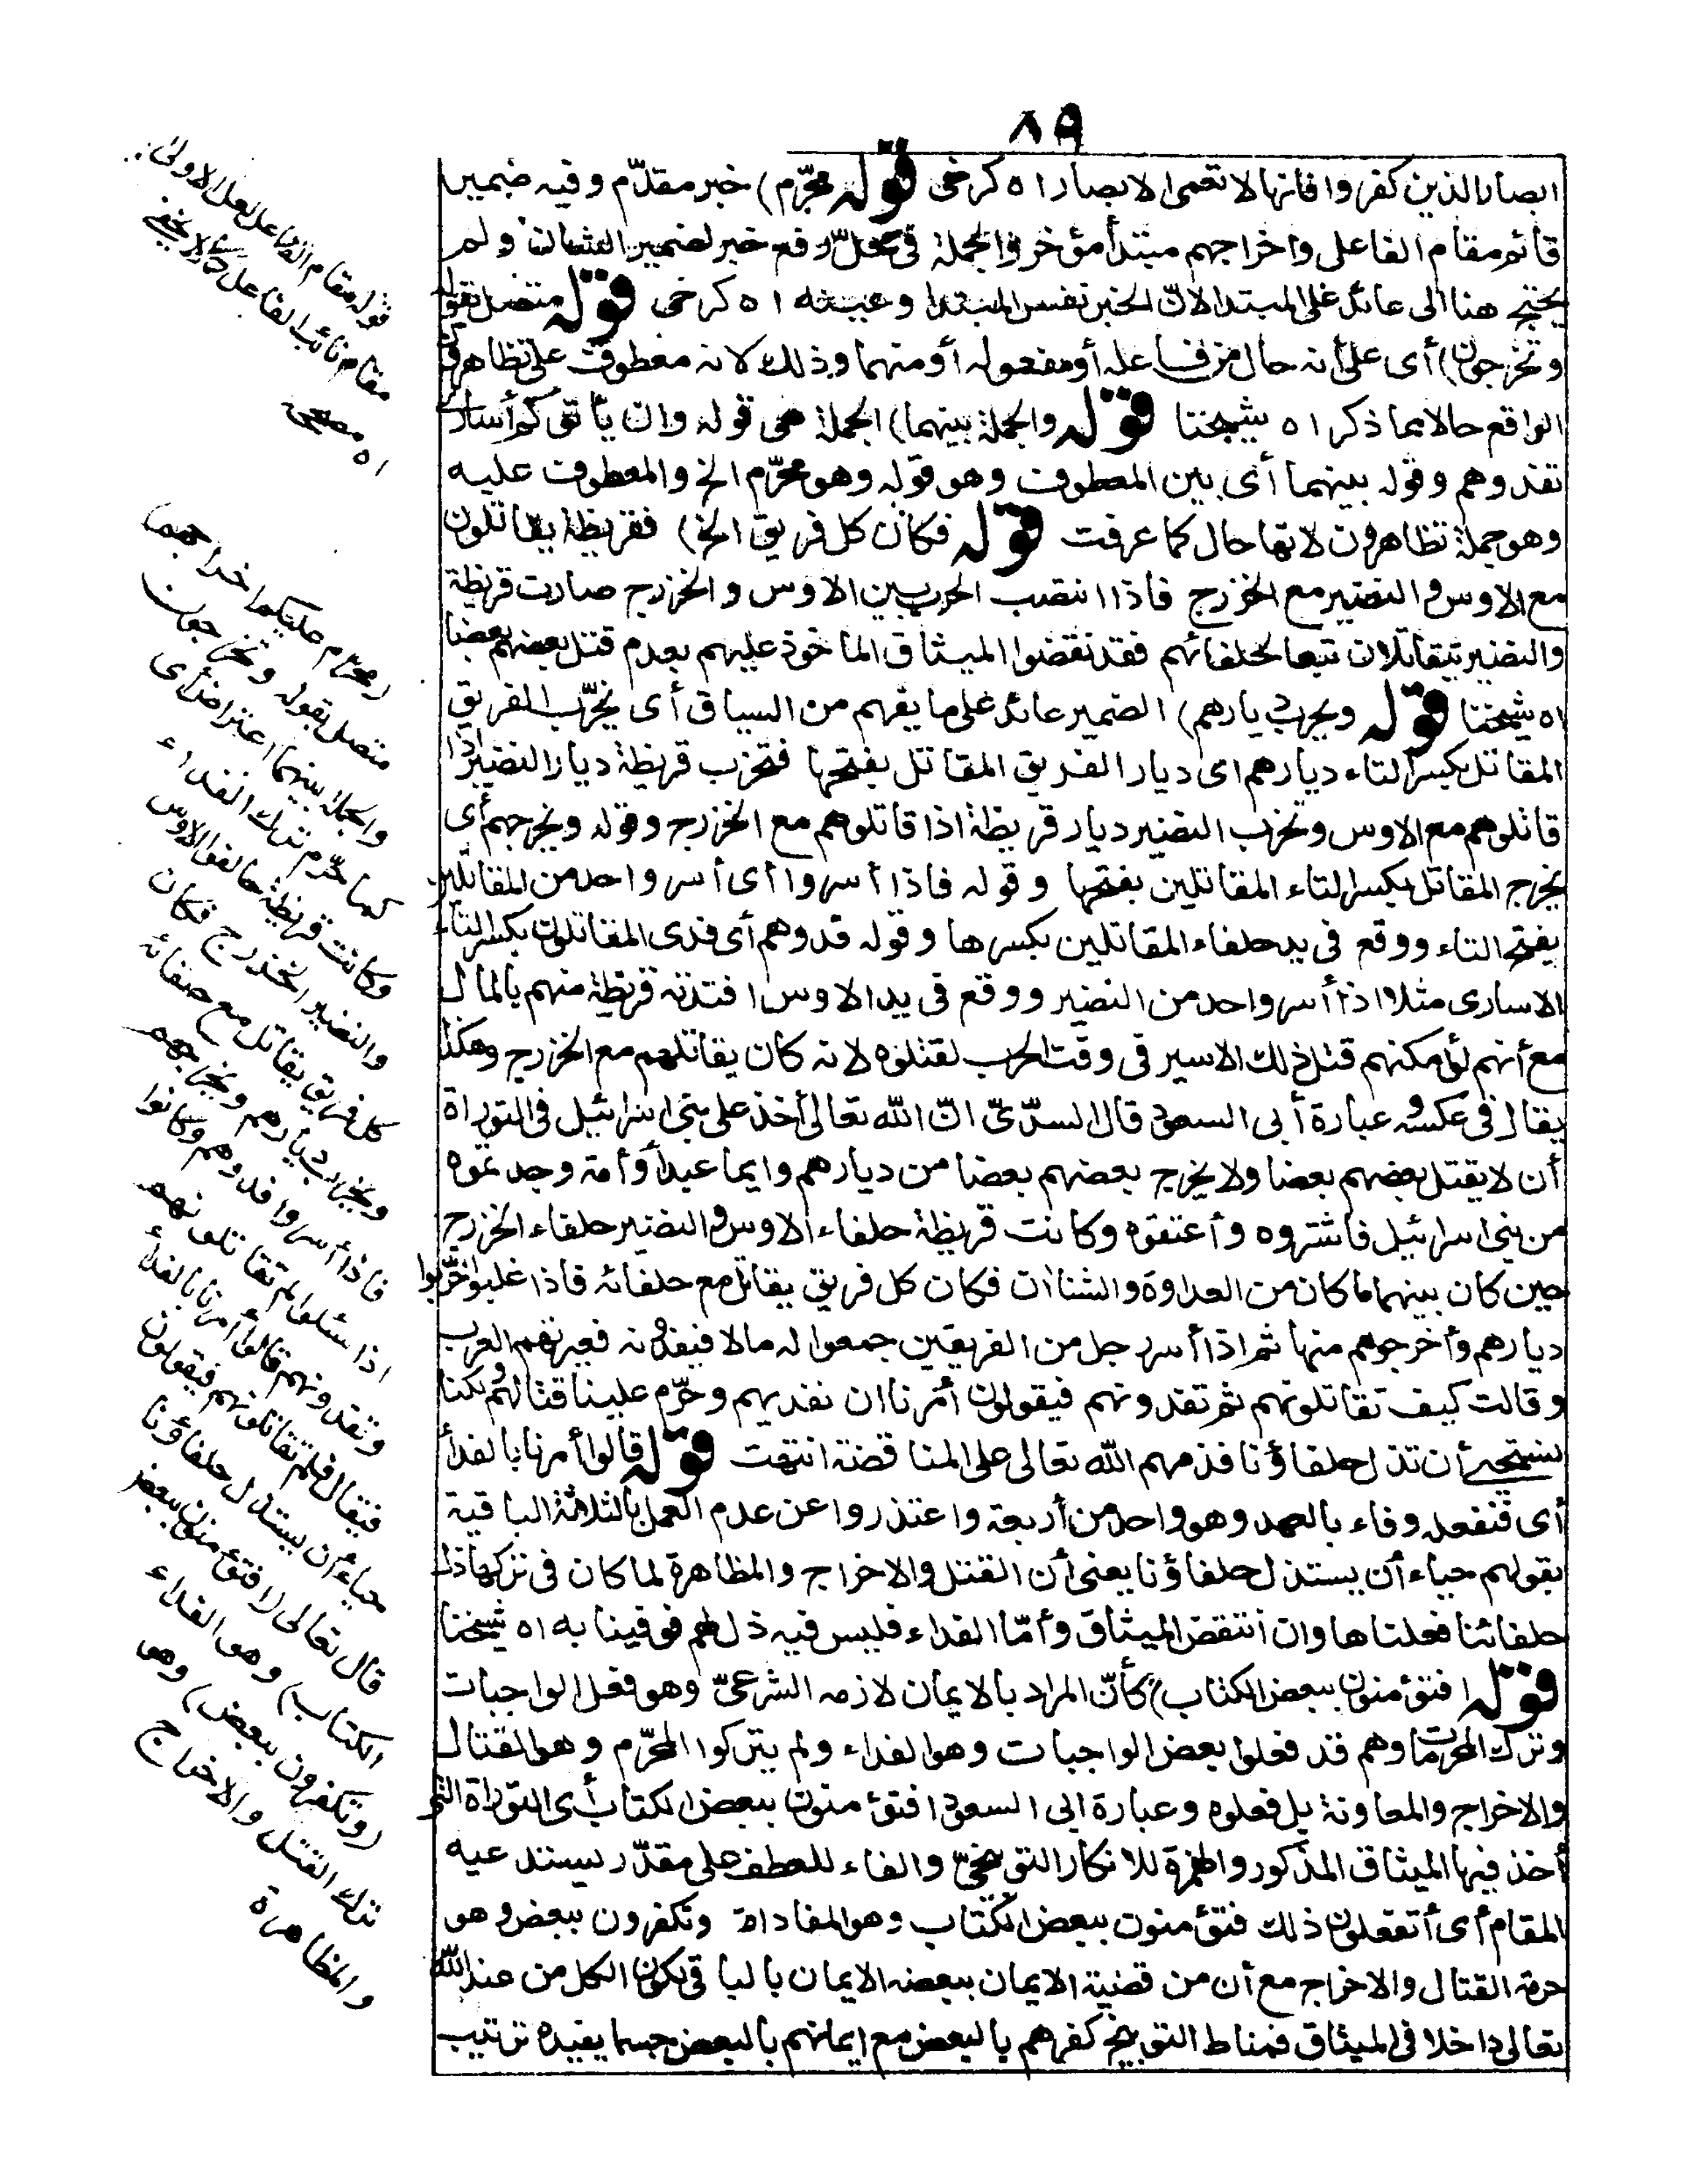 ٨٩
ابصار الذين كفروا فانها لا تعمى الابصار اه كرخى قوله محرّم) خبر مقدّم وفيه ضمير
قائم مقام الفاعل واخراجهم مبتدأ مؤخر والجملة فى محلّ رفع خبر لضمير الشان ولم
يحتج هنا الى عائد على المبتدا لانّ الخبر نفس المبتدا وعينه اه كرخى قوله متصل بقوله
وتخرجون) أى على أنه حال من فاعله أو مفعوله أو منهما وذلك لانه معطوف على تظاهرون
الواقع حالا بما ذكر اه شيخنا قوله والجملة بينهما) الجملة هى قوله وان يأتوكم أسارى
تفدوهم وقوله بينهما أى بين المعطوف وهو قوله وهو محرّم الخ والمعطوف عليه
وهو جملة تظاهرون لانها حال كما عرفت قوله فكان كل فريق الخ) فقريظة يقاتلون
مع الاوس والنضير مع الخزرج فاذا انتصب الحرب بين الاوس والخزرج صارت قريظة
والنضير يتقاتلان تبعا لحلفائهم فقد نقضوا الميثاق الماخوذ عليهم بعدم قتل بعضهم بعضا
اه شيخنا قوله ويخرب ديارهم) الضمير عائد على ما يفهم من السياق أى يخرّب الفريق
المقاتل بكسر التاء ديارهم اى ديار الفريق المقاتل بفتحها فتخرب قريظة ديار النضير اذا
قاتلوهم مع الاوس وتخرب النضير ديار قريظة اذا قاتلوهم مع الخزرج وقوله ويخرجهم أى
يخرج المقاتل بكسر التاء المقاتلين بفتحها وقوله فاذا أسروا أى أسر واحد من المقاتلين
بفتح التاء ووقع فى يد حلفاء المقاتلين بكسرها وقوله فدوهم أى فدى المقاتلون بكسر التاء
الاسارى مثلا اذا أسر واحد من النضير ووقع فى يد الاوس افتدته قريظة منهم بالمال
مع أنهم لو أمكنهم قتل ذلك الاسير فى وقت الحرب لقتلوه لانه كان يقاتلهم مع الخزرج وهكذا
يقال فى عكسه وعبارة أبى السعود قال السدّىّ انّ الله تعالى أخذ على بنى اسرائيل فى التوراة
أن لا يقتل بعضهم بعضا ولا يخرج بعضهم بعضا من ديارهم وايما عبد أو أمة وجدتموه
من بنى اسرائيل فاشتروه وأعتقوه وكانت قريظة حلفاء الاوس والنضير حلفاء الخزرج
حين كان بينهما ما كان من العداوة والشنآن فكان كل فريق يقاتل مع حلفائه فاذا غلبوا خرّبوا
ديارهم وأخرجوهم منها ثم اذا أسر رجل من الفريقين جمعوا له مالا فيفدونه فعيرتهم العرب
وقالت كيف تقاتلونهم ثم تفدونهم فيقولون أمرنا ان نفديهم وحرّم علينا قتالهم ولكنا
نستحيى أن تذل حلفاؤنا فذمهم الله تعالى على المناقضة انتهت قوله قالوا أمرنا بالفدأ
أى فنفعله وفاء بالعهد وهو واحد من أربعة واعتذروا عن عدم العمل بالثلاثة الباقية
بقولهم حياء أن يستذل حلفاؤنا يعنى أن القتل والاخراج والمظاهرة لما كان فى تركها ذل
حلفائنا فعلناها وان انتقض الميثاق وأمّا الفداء فليس فيه ذل لهم فوفينا به اه شيخنا
قوله افتؤمنون ببعض الكتاب) كأنّ المراد بالايمان لازمه الشرعىّ وهو فعل الواجبات
وترك المحرمات وهم قد فعلوا بعض الواجبات وهو الفداء ولم يتركوا المحرّم وهو القتال
والاخراج والمعاونة بل فعلوه وعبارة ابى السعود افتؤمنون ببعض الكتاب أى التوراة التى
أخذ فيها الميثاق المذكور والهمزة للانكار التوبيخىّ والفاء للعطف على مقدّر يستدعيه
المقام أى أتفعلون ذلك فتؤمنون ببعض الكتاب وهو المفاداة وتكفرون ببعض وهو
حرمة القتال والاخراج مع أن من قضية الايمان ببعضه الايمان بالباقى لكون الكل من عند الله
تعالى داخلا فى الميثاق فمناط التوبيخ كفرهم بالبعض مع ايمانهم بالبعض حسبما يفيده ترتيب
قوله مقام الفاعل لعل الاولى
مقام نائب الفاعل كما لا يخفى
اه مصححه
(محرّم عليكم اخراجهم)
متصل بقوله وتخرجون
والجملة بينهما اعتراض أى
كما حرّم ترك الفداء
وكانت قريظة حالفوا الاوس
والنضير الخزرج فكان
كل فريق يقاتل مع حلفائه
ويخرب ديارهم ويخرجهم
فاذا أسروا فدوهم وكانوا
اذا سئلوا لم تقاتلونهم
وتفدونهم قالوا أمرنا بالفدأ
فيقال فلم تقاتلونهم فيقولون
حياء أن يستذل حلفاؤنا
قال تعالى (افتؤمنون ببعض
الكتاب) وهو الفداء
(وتكفرون ببعض) وهو
ترك القتل والاخراج
والمظاهرة